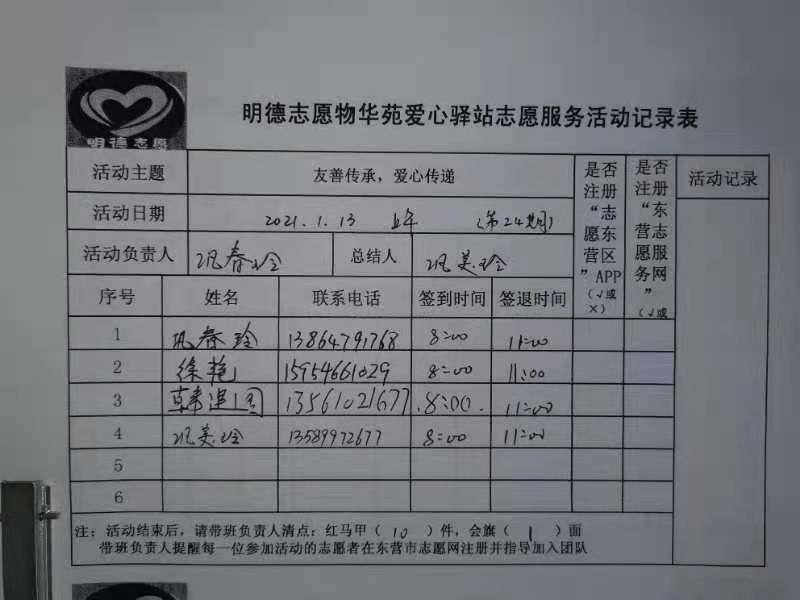 明德志愿
明德志愿物华苑爱心驿站志愿服务活动记录表
活动主题 友善传承，爱心传递 是否注册“志愿东营区”APP（√或×） 是否注册“东营志愿服务网”（√或 活动记录
活动日期 2021.1.13 上午 （第24期）
活动负责人 巩春玲 总结人 巩美玲
序号 姓名 联系电话 签到时间 签退时间
1 巩春玲 13864791768 8:00 11:00
2 徐艳 15954661029 8:00 11:00
3 韩建国 13561021677 8:00. 11:00
4 巩美玲 13589972677 8:00 11:00
5
6
注：活动结束后，请带班负责人清点：红马甲（ 10 ）件，会旗（ 1 ）面
带班负责人提醒每一位参加活动的志愿者在东营市志愿网注册并指导加入团队